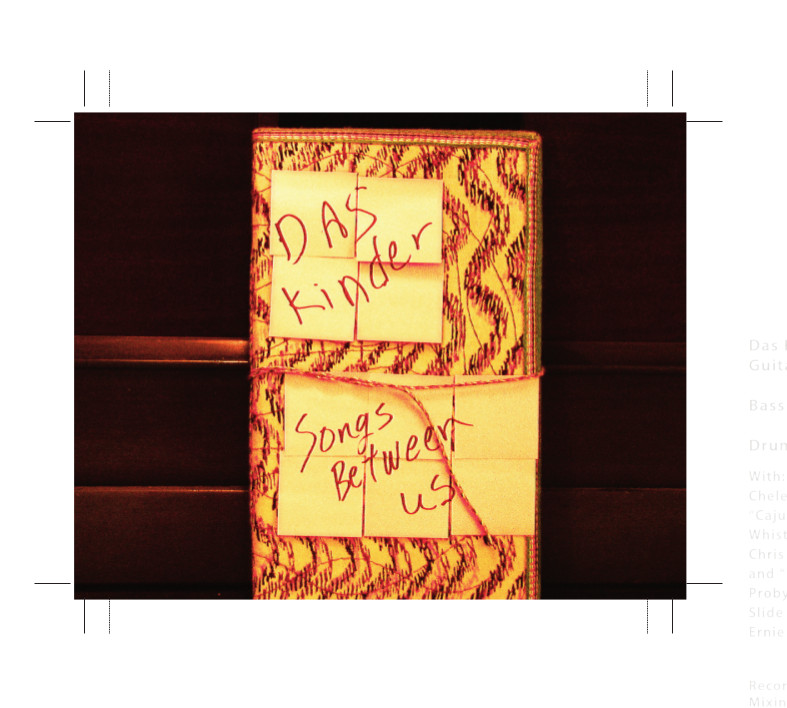 DAS
Kinder
Songs
Between
us
Das
Guita
Bass
Drum
With:
Chele
"Caju
Whist
Chris
and "
Proby
Slide
Ernie
Recor
Mixin